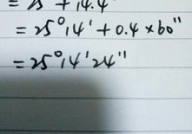 = 25° + 14.4'
= 25°14' + 0.4 × 60''
= 25°14'24''